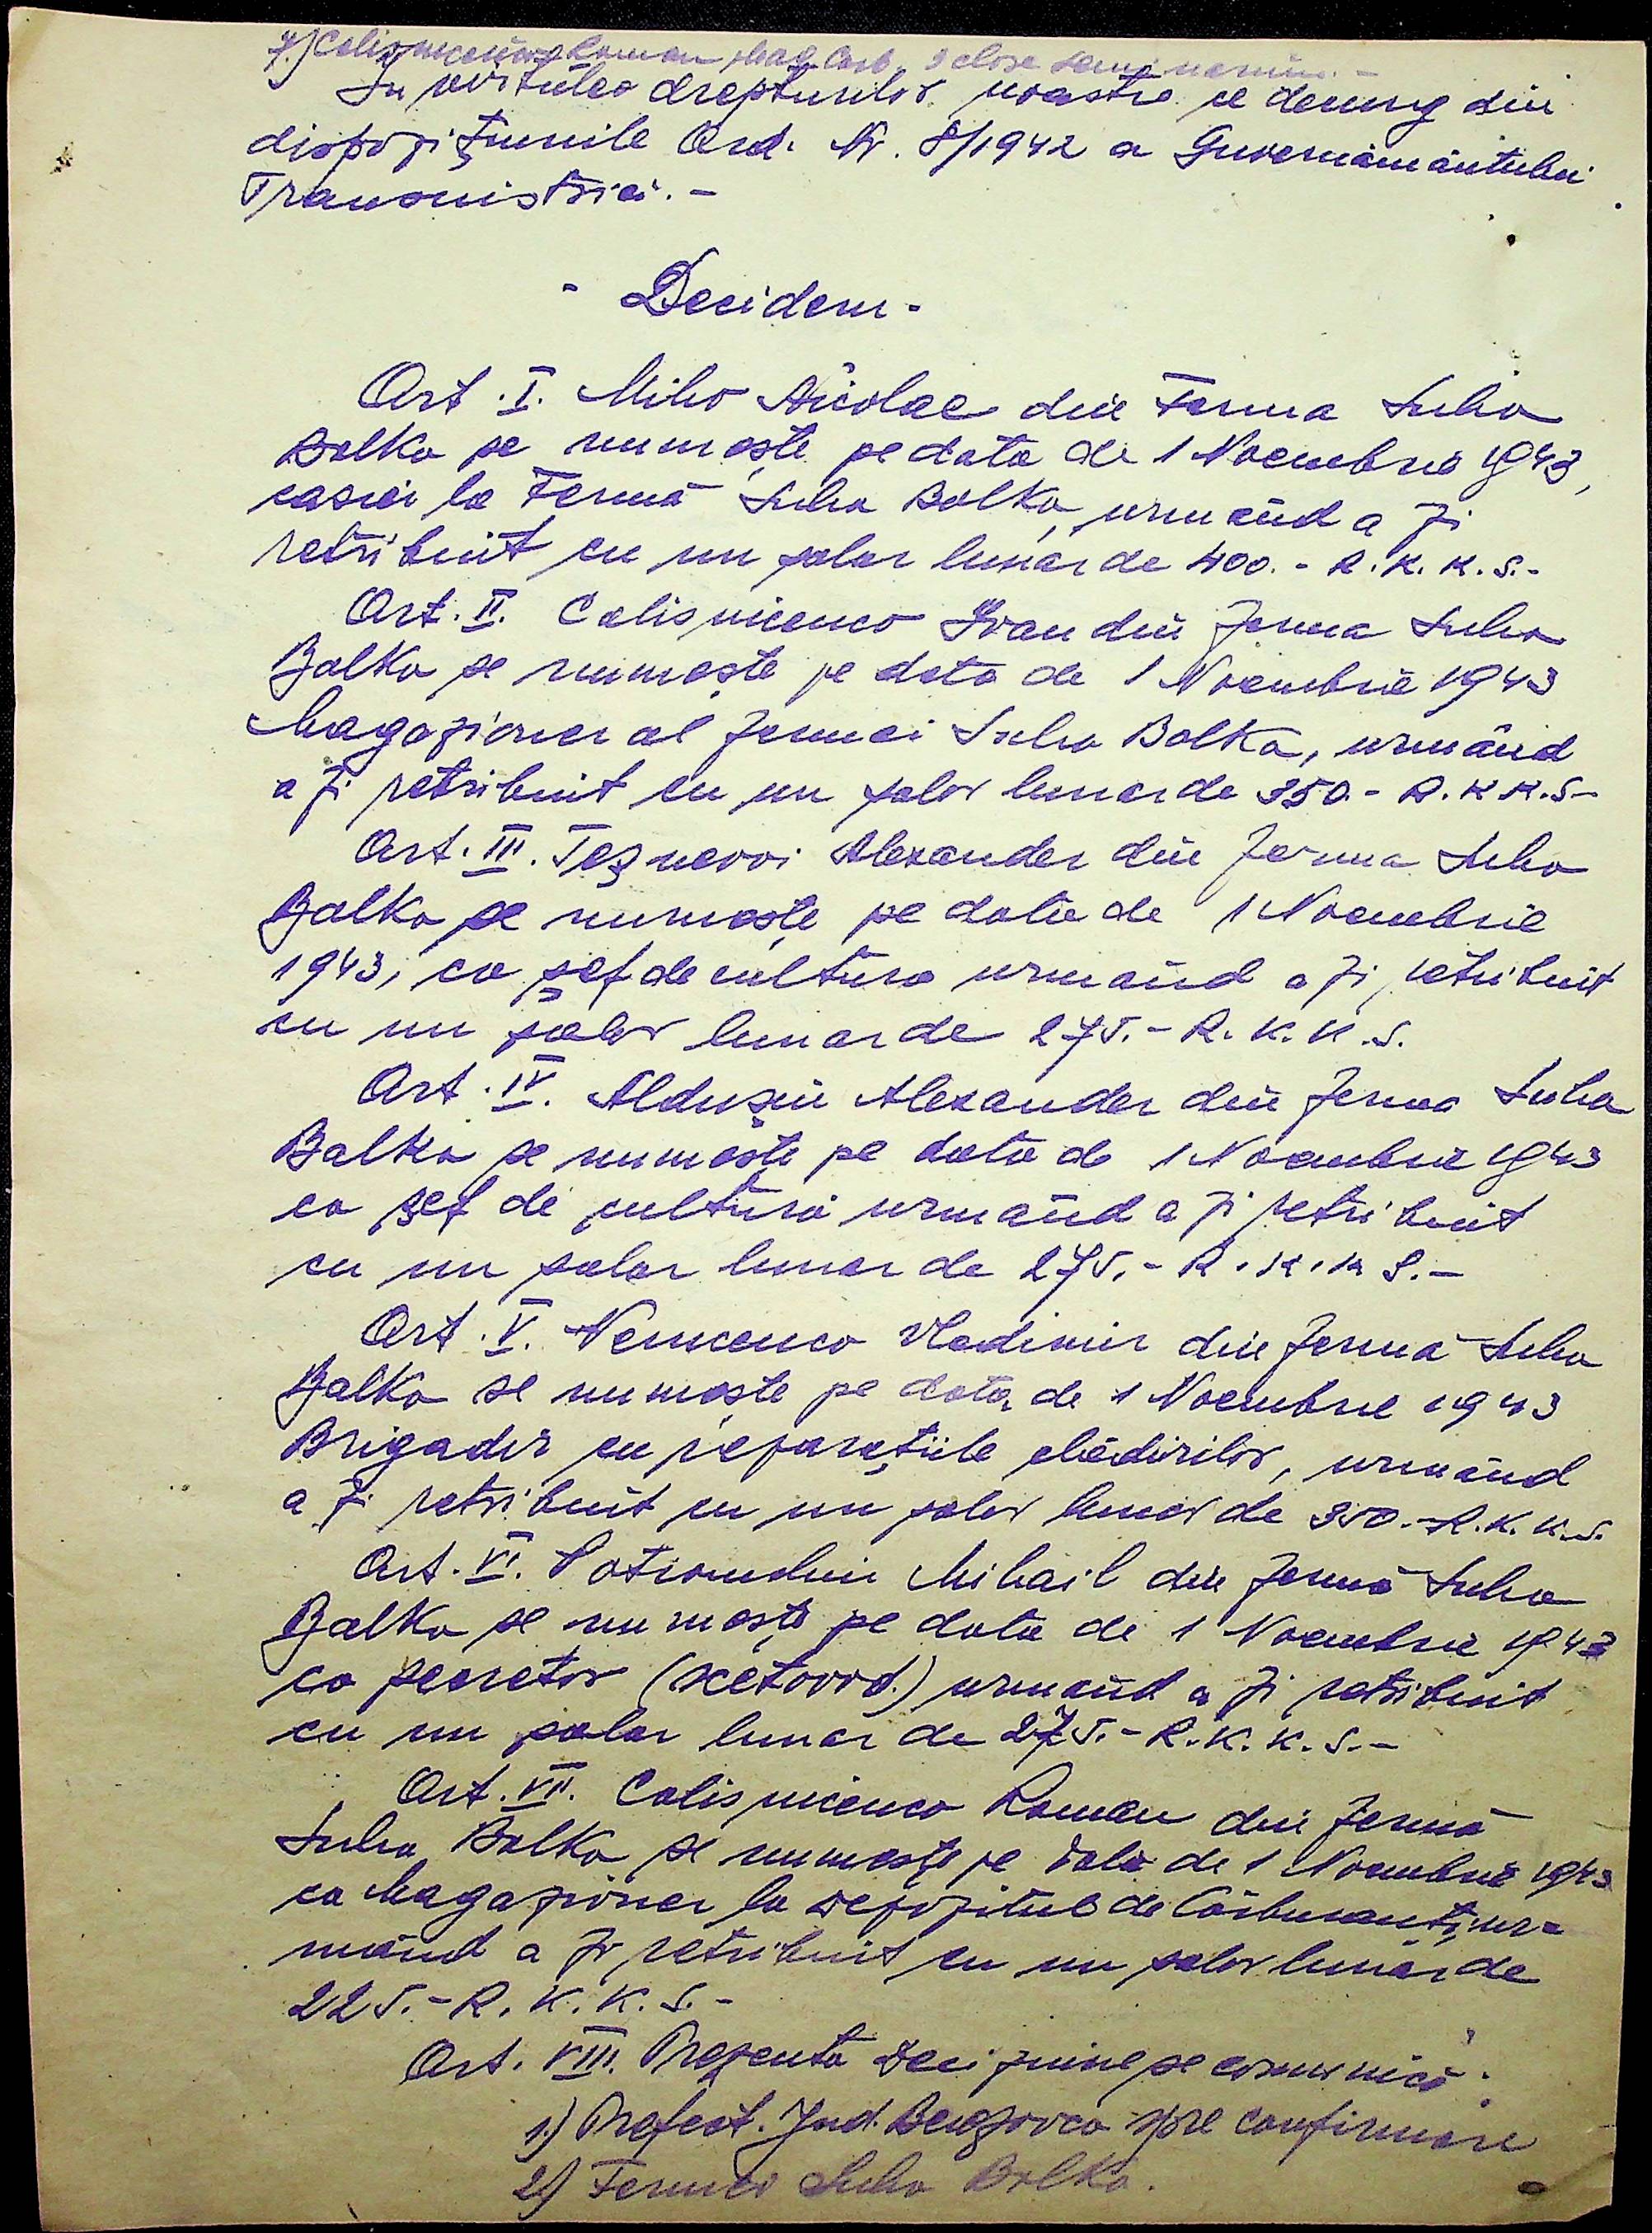 7.) Colisnicenco Roman Mag. Carb. 3 clase seminarium.-
In virtutea drepturilor noastre ce decurg din
dispozițiunile Ord. Nr. 8/1942 a Guvernământului
Transnistriei.-
- Decidem -
Art. I. Miho Nicolae din Ferma Suha
Balka se numește pe data de 1 Noembrie 1943,
casier la Fermă Suha Balka, urmând a fi
retribuit cu un salar lunar de 400.- R.K.K.S.-
Art. II. Colisnicenco Ivan din ferma Suha
Balka se numește pe data de 1 Noembrie 1943
Magazioner al fermei Suha Balka, urmând
a fi retribuit cu un salar lunar de 350.- R.K.K.S-
Art. III. Alexander din ferma Suha
Balka se numește pe data de 1 Noembrie
1943, ca șef de cultura urmând a fi retribuit
cu un salar lunar de 275.- R.K.K.S.
Art. IV. Aldușin Alexander din ferma Suha
Balka se numește pe data de 1 Noembrie 1943
ca șef de cultură urmând a fi retribuit
cu un salar lunar de 275.- R.K.K S.-
Art. V. Nemcenco Vladimir din fermă Suha
Balka se numește pe data de 1 Noembrie 1943
Brigadir cu reparațiile clădirilor, urmând
a fi retribuit cu un salar lunar de 350.- R.K.K.S.
Art. VI. Mihail din fermă Suha
Balka se numește pe data de 1 Noembrie 1943
ca secretar urmând a fi retribuit
cu un salar lunar de 275.- R.K.K.S.-
Art. VII. Colisnicenco Roman din fermă
Suha Balka se numește pe data de 1 Noembrie 1943
ca Magazioner la depozitul de Cărburanți, ur=
mând a fi retribuit cu un salar lunar de
225.- R.K.K.S.-
Art. VIII. Prezenta deciziune se comunică:
1.) Prefect. Jud. Berezovca spre confirmare
2) Fermei Suha Balka.